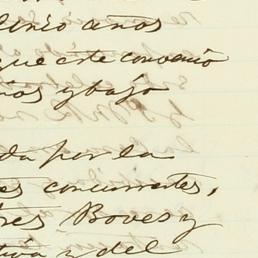 cinco años
que este convenio
años y bajo
da por la
es concurrentes,
res Boves y
tiva y del